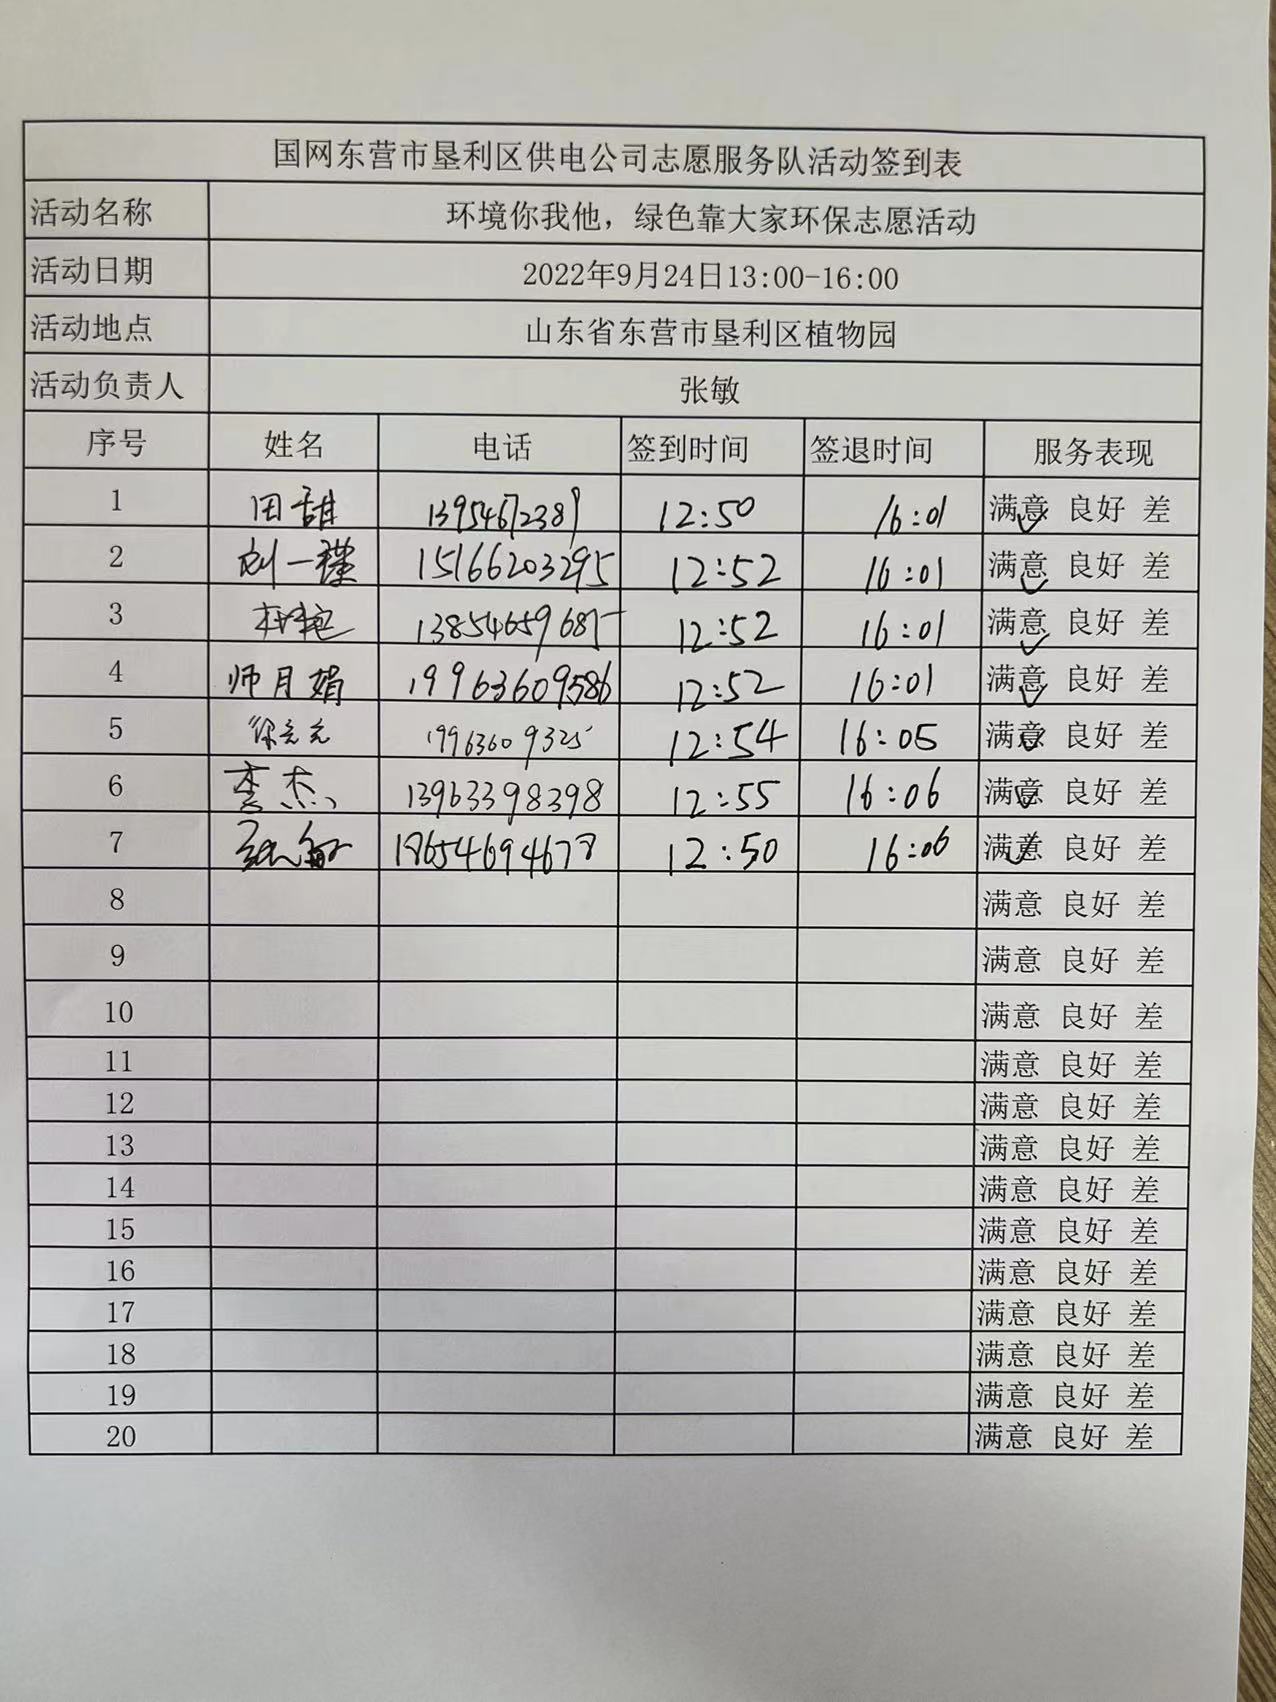 国网东营市垦利区供电公司志愿服务队活动签到表
活动名称 环境你我他，绿色靠大家环保志愿活动
活动日期 2022年9月24日13:00-16:00
活动地点 山东省东营市垦利区植物园
活动负责人 张敏
序号 姓名 电话 签到时间 签退时间 服务表现
1 田甜 13954672389 12:50 16:01 满意 良好 差
2 刘一瑾 15166203295 12:52 16:01 满意 良好 差
3 13854659685 12:52 16:01 满意 良好 差
4 师月娟 19963609586 12:52 16:01 满意 良好 差
5 徐元元 19963609325 12:54 16:05 满意 良好 差
6 李杰 13963398398 12:55 16:06 满意 良好 差
7 张敏 18654694678 12:50 16:06 满意 良好 差
8 满意 良好 差
9 满意 良好 差
10 满意 良好 差
11 满意 良好 差
12 满意 良好 差
13 满意 良好 差
14 满意 良好 差
15 满意 良好 差
16 满意 良好 差
17 满意 良好 差
18 满意 良好 差
19 满意 良好 差
20 满意 良好 差